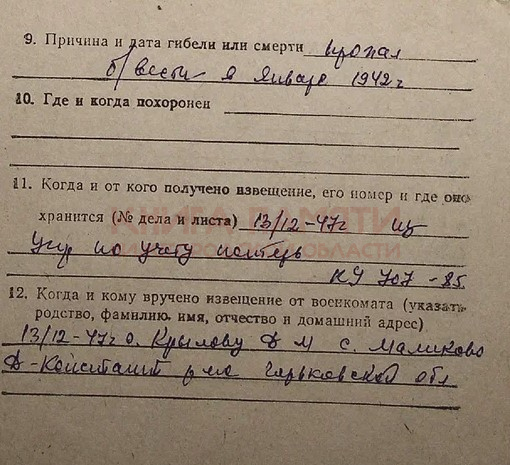 9. Причина и дата гибели или смерти пропал
б/вести в январе 1942 г
10. Где и когда похоронен
11. Когда и от кого получено извещение, его номер и где оно
хранится (№ дела и листа) 13/12-47г из
Упр по учету потерь
КУ 707-85
КНИГА ПАМЯТИ
ОБЛАСТИ
12. Когда и кому вручено извещение от военкомата (указать
родство, фамилию, имя, отчество и домашний адрес)
13/12-47г о. Крылову Д М с. Маликово
Д-Константи р-на Горьковской обл